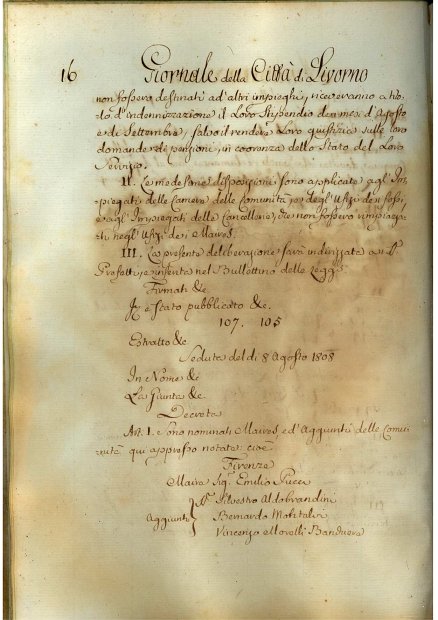 16 Giornale della Città di Livorno
non fossero destinati ad'altri impieghi, riceveranno a tito-
lo d'Indennizzazione il Loro Stipendio dei mesi d'Agosto
e di Settembre, salvo il rendere Loro giustizia sulle loro
domande di pensioni, in coerenza dello Stato del Loro
Servizio.
II. Le medesime disposizioni sono applicate agl'Im-
piegati delle Camere delle Comunità, o degl'Ufizi dei fossi,
e agl'Impiegati delle Cancellerie, se non fossero rimpiaz-
zati negl'Ufizi dei Maires.
III. La presente deliberazione sarà indirizzata ai
Prefetti, e inserita nel Bullettino delle Leggi
Firmati &c
Il è stato pubblicato &c.
107. 105
Estratto &c
Seduta del dì 8 Agosto 1808
In Nome &c
La Giunta &c.
Decreta
Art. I. Sono nominati Maires, ed'Aggiunti delle Comu-
nità qui appresso notate cioè
Firenze
Maire Sig. Emilio Pucci
Silvestro Aldobrandini
Aggiunti Bernardo
Vincenzo Morelli